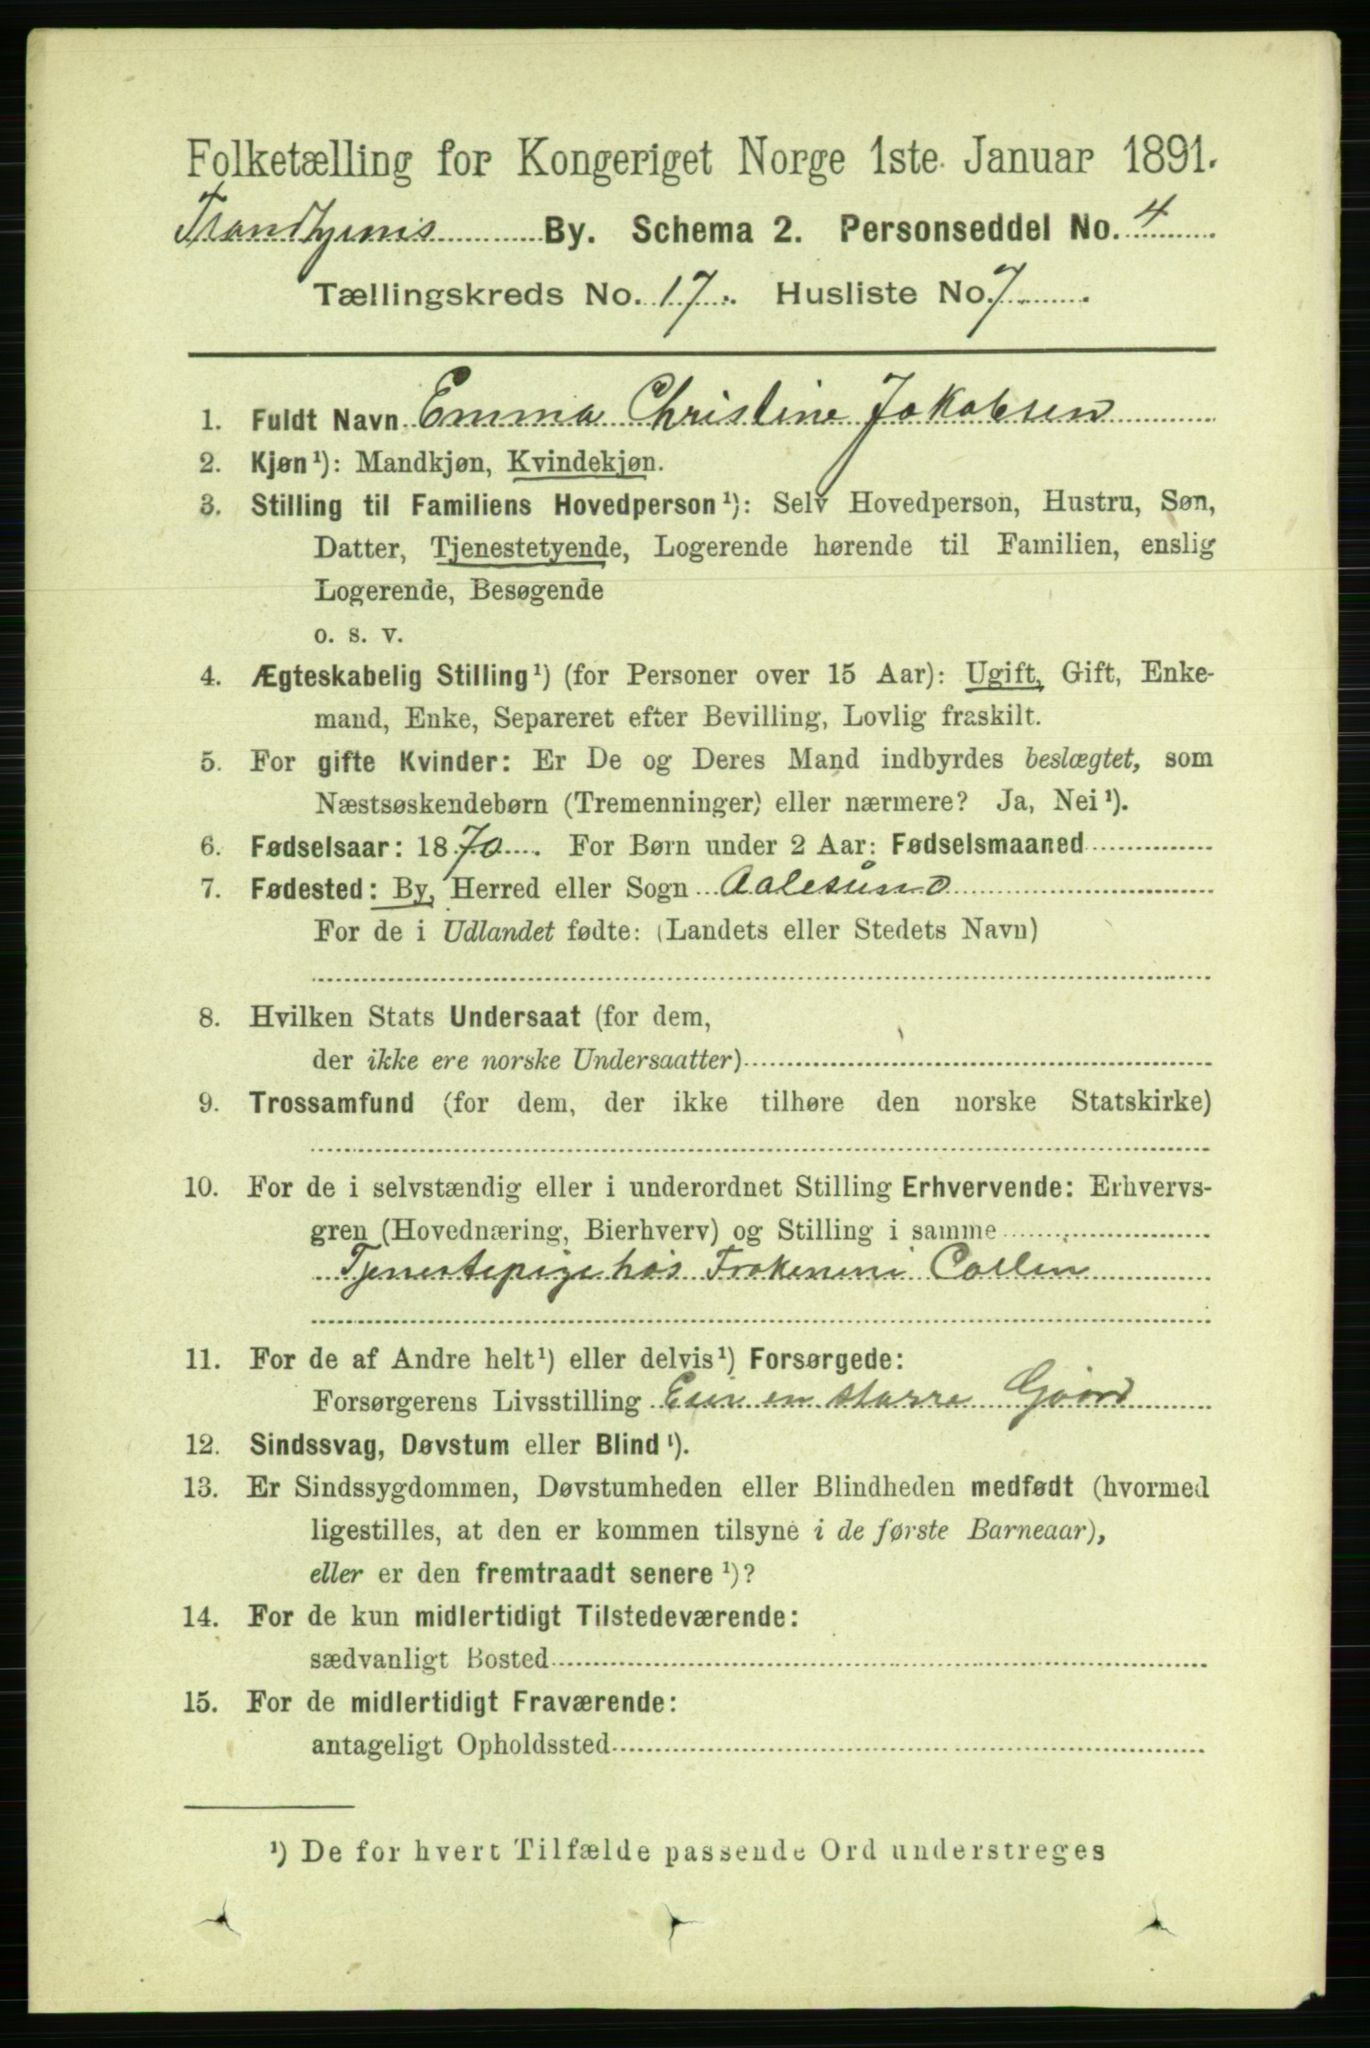 Folketælling for Kongeriget Norge 1ste Januar 1891.
Trondhjems By. Schema 2. Personseddel No. 4
Tællingskreds No. 17. Husliste No. 7
1. Fuldt Navn Emma Christine Jakobsen
2. Kjøn¹): Mandkjøn, Kvindekjøn.
3. Stilling til Familiens Hovedperson¹): Selv Hovedperson, Hustru, Søn,
Datter, Tjenestetyende, Logerende hørende til Familien, enslig
Logerende, Besøgende
o. s. v.
4. Ægteskabelig Stilling¹) (for Personer over 15 Aar): Ugift, Gift, Enke-
mand, Enke, Separeret efter Bevilling, Lovlig fraskilt.
5. For gifte Kvinder: Er De og Deres Mand indbyrdes beslægtet, som
Næstsøskendebørn (Tremenninger) eller nærmere? Ja, Nei¹).
6. Fødselsaar: 1870. For Børn under 2 Aar: Fødselsmaaned
7. Fødested: By, Herred eller Sogn Aalesund
For de i Udlandet fødte: (Landets eller Stedets Navn)
8. Hvilken Stats Undersaat (for dem,
der ikke ere norske Undersaatter)
9. Trossamfund (for dem, der ikke tilhøre den norske Statskirke)
10. For de i selvstændig eller i underordnet Stilling Erhvervende: Erhvervs-
gren (Hovednæring, Bierhverv) og Stilling i samme
Tjenestepige hos
11. For de af Andre helt¹) eller delvis¹) Forsørgede:
Forsørgerens Livsstilling Eier en større Gaard
12. Sindssvag, Døvstum eller Blind¹).
13. Er Sindssygdommen, Døvstumheden eller Blindheden medfødt (hvormed
ligestilles, at den er kommen tilsyne i de første Barneaar),
eller er den fremtraadt senere¹)?
14. For de kun midlertidigt Tilstedeværende:
sædvanligt Bosted
15. For de midlertidigt Fraværende:
antageligt Opholdssted
¹) De for hvert Tilfælde passende Ord understreges